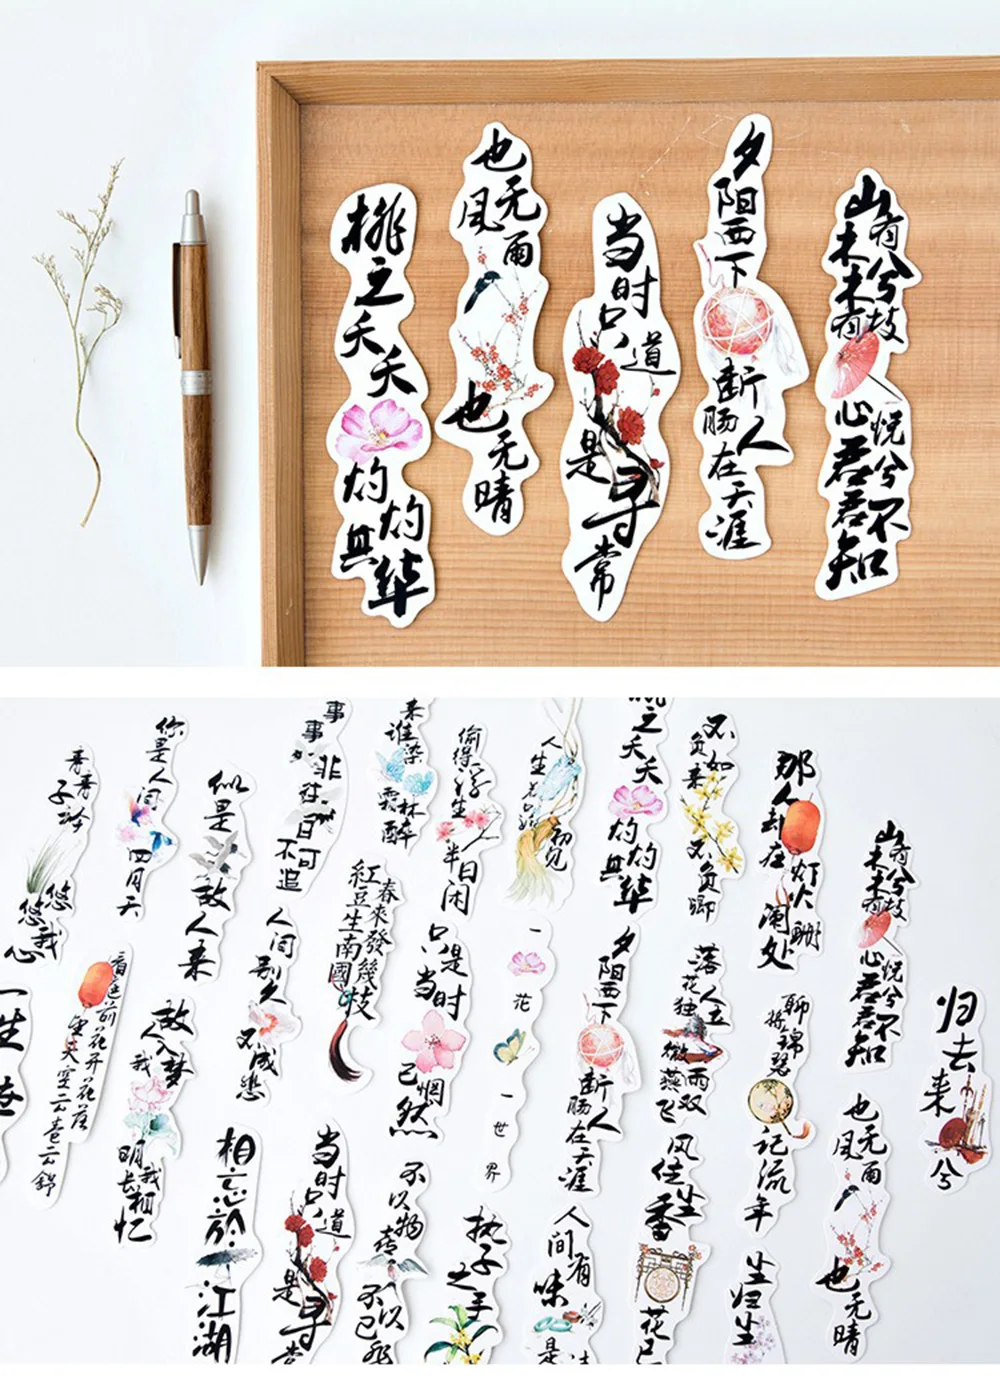 桃之夭夭
灼灼其华
也无风雨
也无晴
当时只道
是寻常
夕阳西下
断肠人在天涯
山有木兮木有枝
心悦君兮君不知
青青子衿
悠悠我心
你是人间
四月天
似是
故人来
事事
非
往日不可追
来谁染
霜林醉
偷得浮生
半日闲
人生若只如
初见
之夭夭
灼灼其华
不如
负来
不负卿
那人却在
灯火阑珊处
山有木兮木有枝
心悦君兮君不知
归去来兮
一生
世
看庭前花开花落
望天空云卷云舒
故人入我梦
明我长相忆
人间别久
不成悲
紅豆生南國
春來發幾枝
只是当时
已惘然
一花
一世界
夕阳西下
断肠人在天涯
落花人独立
微雨燕双飞
聊将锦瑟
记流年
也无风雨
也无晴
相忘於
江湖
当时只道
是寻常
不以物喜
不以己悲
执子之手
人间有味
是
风住尘香
花已
生生